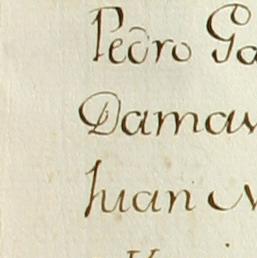 Pedro Ga
Damav
Juan